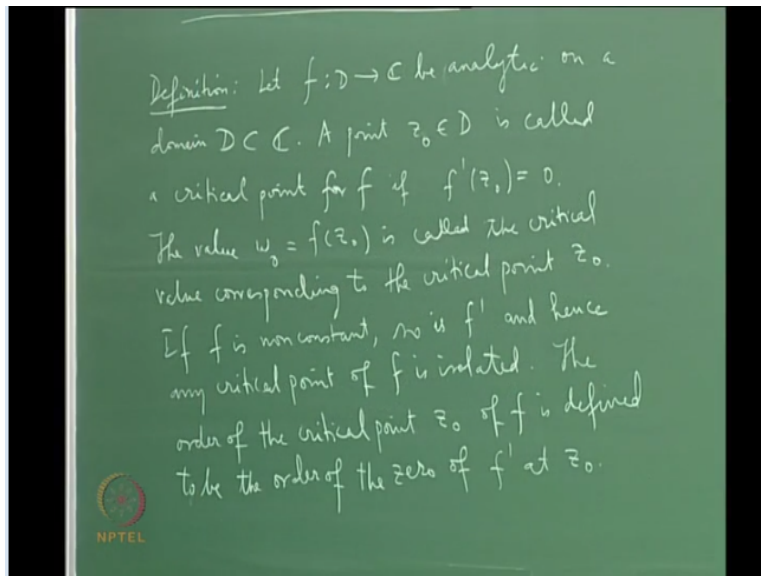 Definition: Let f: D → ℂ be analytic on a
domain D ⊂ ℂ. A point z₀ ∈ D is called
a critical point for f if f'(z₀) = 0.
The value w₀ = f(z₀) is called the critical
value corresponding to the critical point z₀.
If f is nonconstant, so is f' and hence
any critical point of f is isolated. The
order of the critical point z₀ of f is defined
to be the order of the zero of f' at z₀.
NPTEL